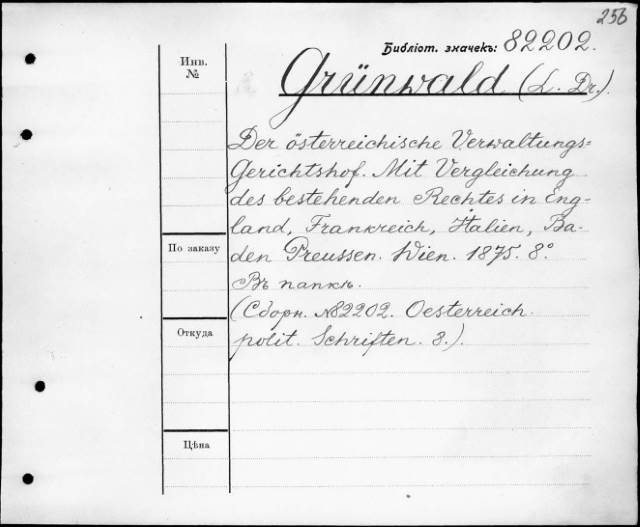 256
Библіот. значекъ: 82202.
Инв.
№
Grünwald (L. Dr.).
Der österreichische Verwaltungs=
Gerichtshof. Mit Vergleichung
des bestehenden Rechtes in Eng-
land, Frankreich, Italien, Ba-
По заказу
den Preussen. Wien. 1875. 8°
Въ папкѣ.
(Сборн. №82202. Oesterreich.
Откуда
polit. Schriften. 3.).
Цѣна